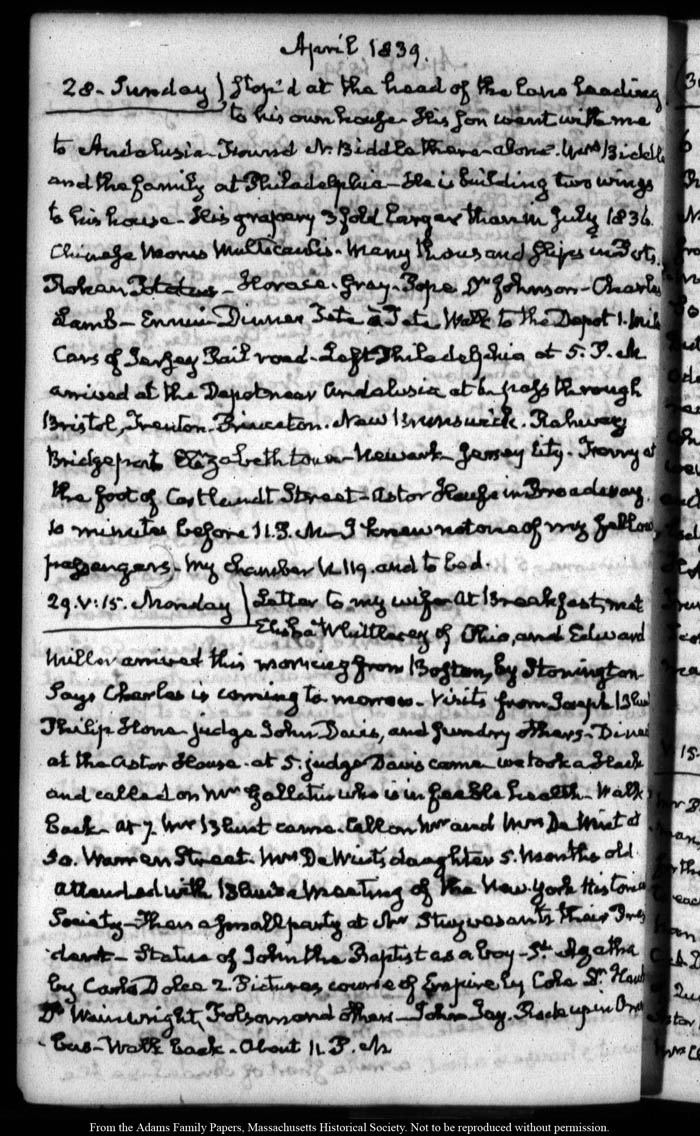 April 1839.
28. Sunday) Stop'd at the head of the lane leading
to his own house. His son went with me
to Andalusia. Found N. Biddle there - alone. Mrs Biddle
and the family at Philadelphia - He is building two wings
to his house - His grapery 3 fold larger than in July 1836.
Chinese Morus Multicaulis. Many thousand slips in Pots.
Rohan Potatoes - Horace. Gray. Pope. Dr Johnson - Charles
Lamb - Ennui - Dinner Tete à Tete Walk to the Depot 1. mile
Cars of Jersey Rail road - Left Philadelphia at 5. P.M
arrived at the Depot near Andalusia at pass through
Bristol, Trenton. Princeton. New Brunswick. Rahway
Bridgeport Elizabethtown - Newark - Jersey City. Ferry at
the foot of Cortlandt Street - Astor House in Broadway.
10 minutes before 11. P.M - I knew not one of my fellow
passengers. My chamber N. 119. and to bed.
29. V:15. Monday) Letter to my wife. At Breakfast, met
Elisha Whittlesey of Ohio, and Edward
Miller arrived this morning from Boston, by Stonington
Says Charles is coming to morrow. Visits from Joseph Blunt
Philip Hone judge John Davis, and sundry others - Dined
at the Astor House. at 5. judge Davis came we took a Hack
and called on Mr Gallatin who is in feeble health - Walk
back - at 7. Mr Blunt came. Call on Mr and Mrs De Wint at
Warren Street. Mrs De Wint's daughter 5. Months old.
Attended with Blunt a Meeting of the New. York Historical
Society - Then a small party at Mr Stuyvesant's their Presi
dent - Statue of John the Baptist as a boy - St. Agatha
by Carlo Dolce 2. Pictures course of Empire by Cole
Dr Wainwright, Folsom and others - John Jay. Back up in Omni
bus - Walk back. About 11. P.M
From the Adams Family Papers, Massachusetts Historical Society. Not to be reproduced without permission.